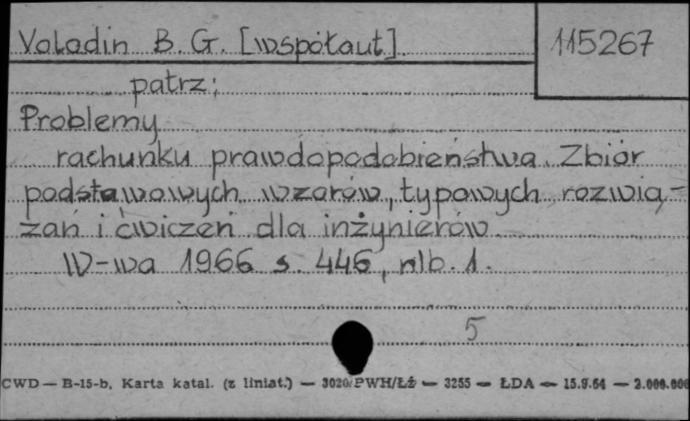 Voladin B. G. [współaut]
115267
patrz:
Problemy
rachunku prawdopodobieństwa. Zbiór
podstawowych wzorów, typowych rozwią-
zań i ćwiczeń dla inżynierów.
W-wa 1966 s. 446, nlb. 1.
5
CWD — B-15-b, Karta katal. (z liniat.) — 3020/PWH/Łż — 3255 — ŁDA — 15.9.64 — 2.000.000